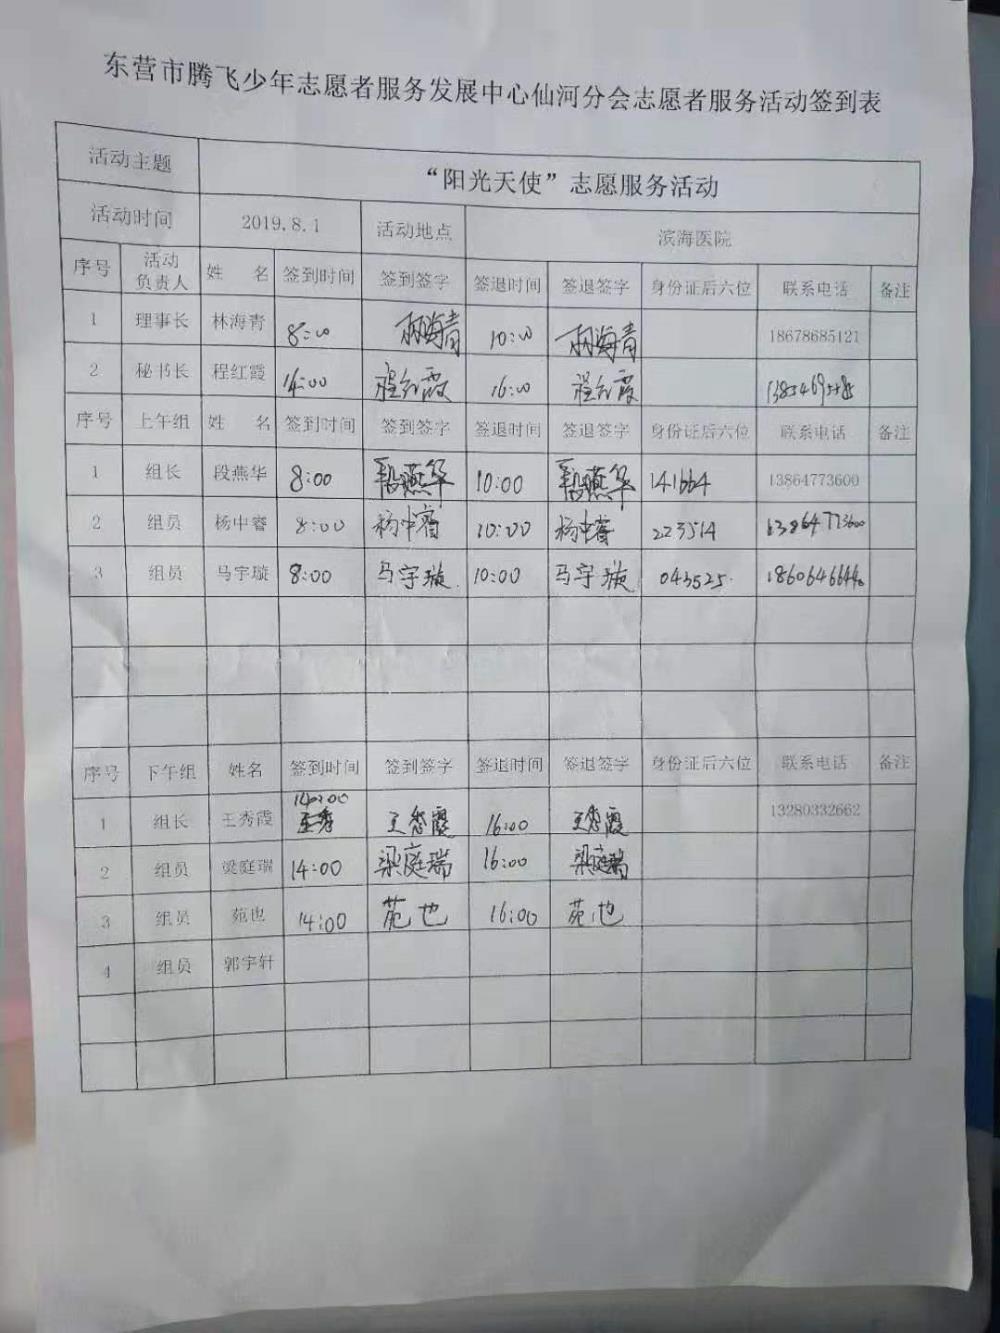 东营市腾飞少年志愿者服务发展中心仙河分会志愿者服务活动签到表
活动主题 “阳光天使”志愿服务活动
活动时间 2019.8.1 活动地点 滨海医院
序号 活动负责人 姓 名 签到时间 签到签字 签退时间 签退签字 身份证后六位 联系电话 备注
1 理事长 林海青 8:00 林海青 10:00 林海青 18678685121
2 秘书长 程红霞 14:00 程红霞 16:00 程红霞
序号 上午组 姓 名 签到时间 签到签字 签退时间 签退签字 身份证后六位 联系电话 备注
1 组长 段燕华 8:00 段燕华 10:00 段燕华 141664 13864773600
2 组员 杨中睿 8:00 杨中睿 10:00 杨中睿 223514 13864773600
3 组员 马宇璇 8:00 马宇璇 10:00 马宇璇 043525
序号 下午组 姓名 签到时间 签到签字 签退时间 签退签字 身份证后六位 联系电话 备注
1 组长 王秀霞 14:00 王秀霞 16:00 王秀霞 13280332662
2 组员 梁庭瑞 14:00 梁庭瑞 16:00 梁庭瑞
3 组员 苑也 14:00 苑也 16:00 苑也
4 组员 郭宇轩